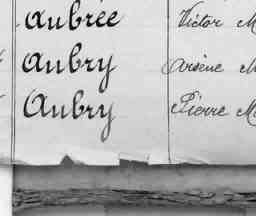 Aubrée Victor M
Aubry Arsène M
Aubry Pierre M